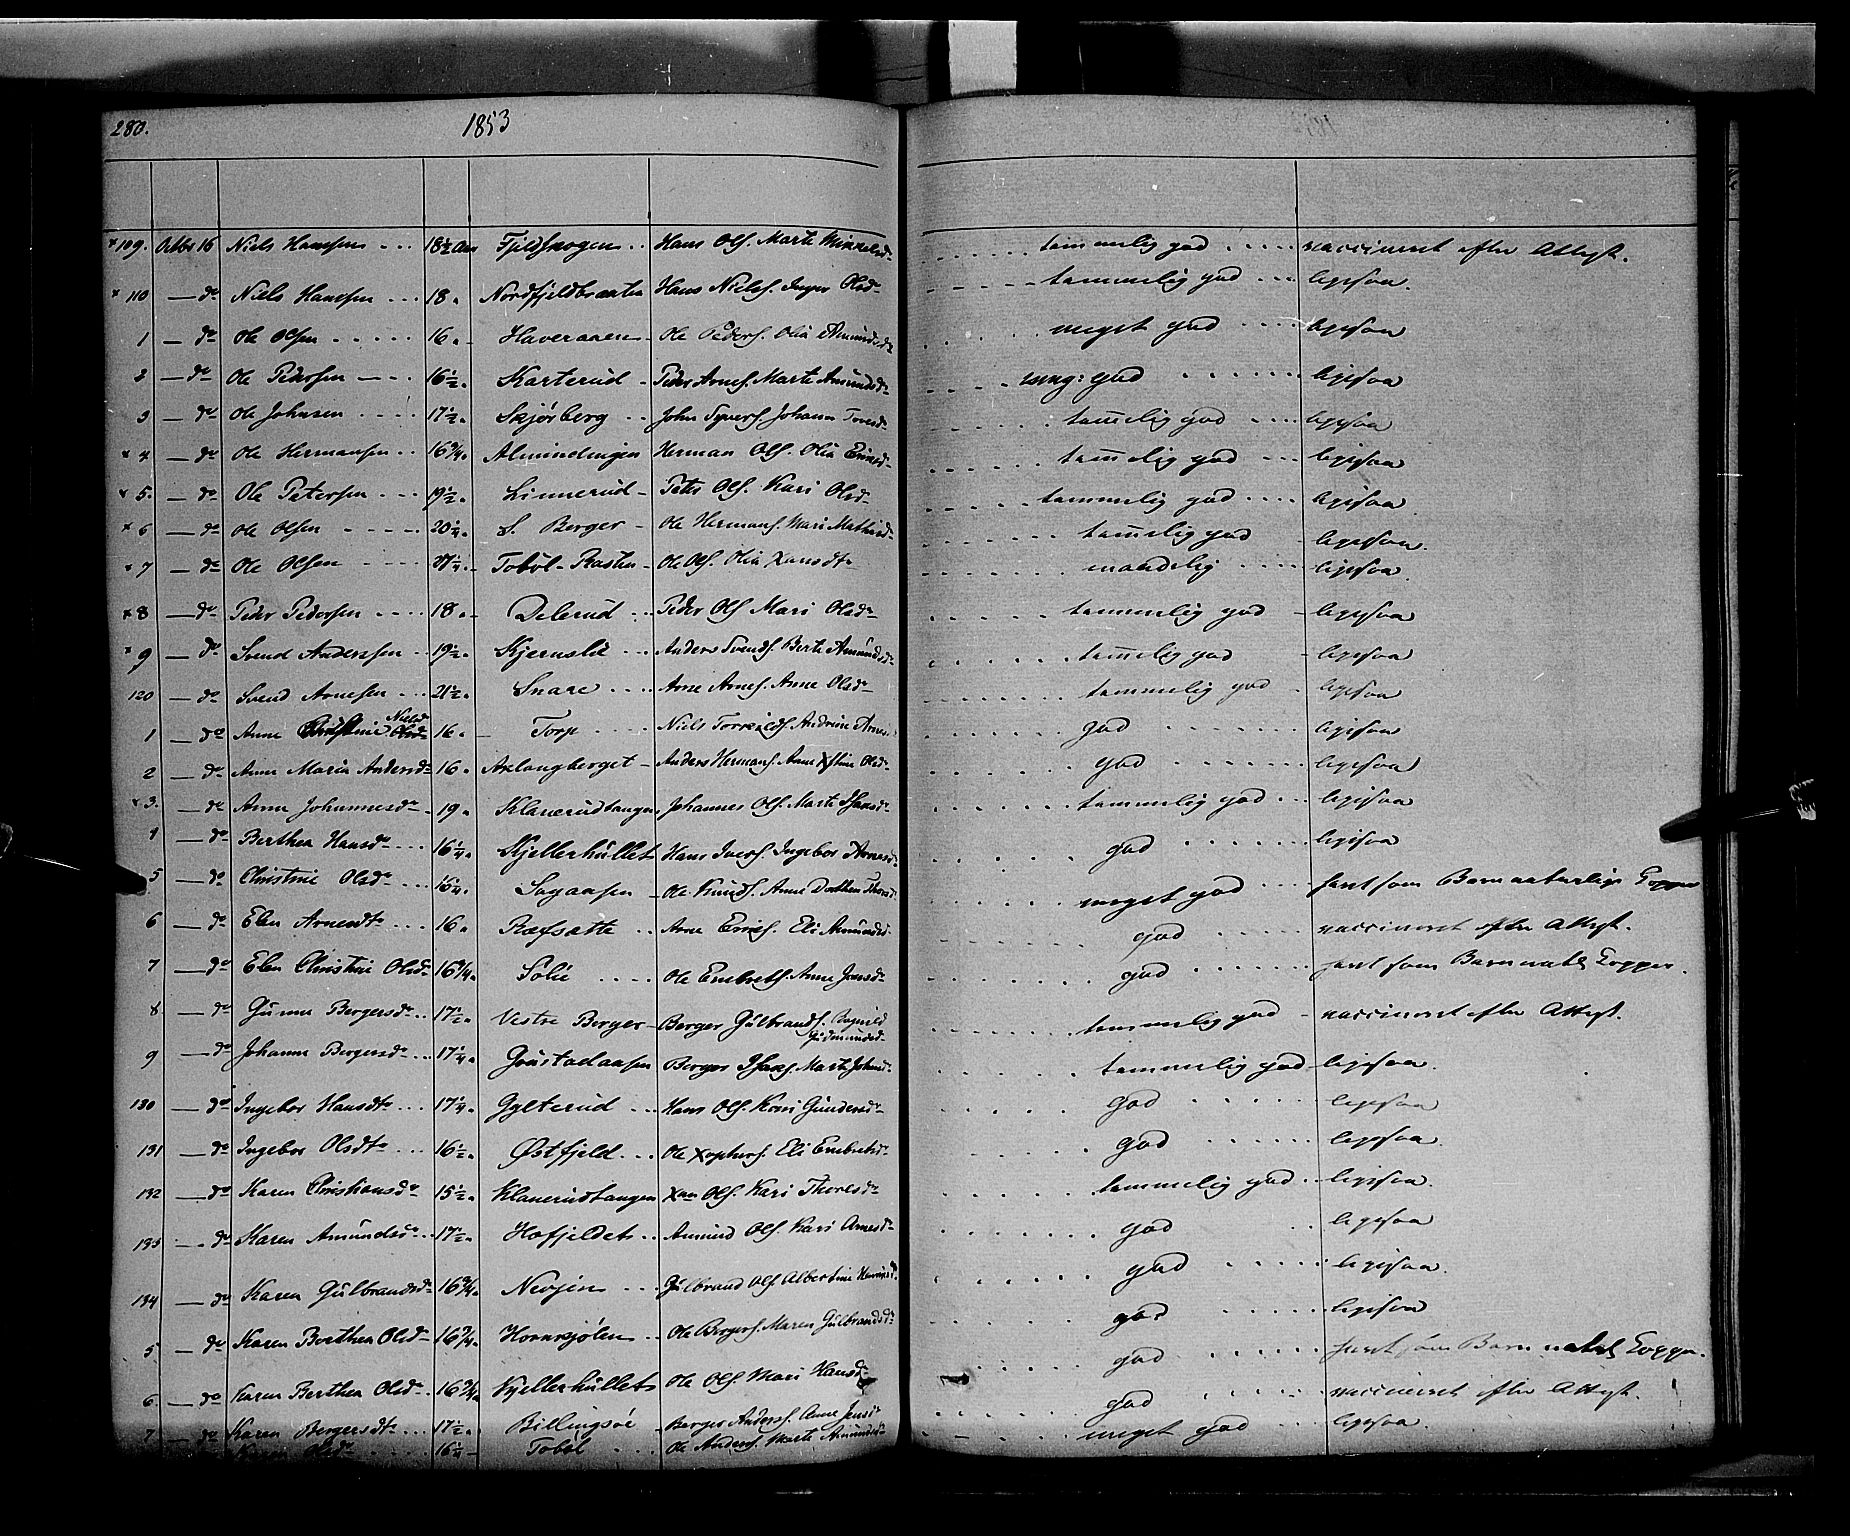 280. 1853
× 109. Octbr 16 Niels Hanssen 18½ Aar Fjeldskogen Hans Ols. Marte Mikkelsdr tammelig god vaccineret efter Attest.
× 110 — do Niels Hanssen 18 Nordfjeldbraaten Hans Niels. Inger Olsdr tammelig god ligesaa.
1 — do Ole Olsen 16 Haveraaen Ole Peders. Olia Amundsdr meget god ligesaa
2 — do Ole Pedersen 16½ Karterud Peder Arnes. Marte Amundsdr meg: god ligesaa
3 — do Ole Johnsen 17½ Skjørberg John Syvers. Johann Toresdr tammelig god ligesaa
× 4 — do Ole Hermansen 16¾ Almindingen Herman Ols. Olia Ericsdr tammelig god ligesaa
× 5. — do Ole Petersen 19½ Linnerud Peter Ols. Kari Olsdr tammelig god ligesaa
× 6 — do Ole Olsen 20¼ S. Berger Ole Hermans. Mari Mathisdr tammelig god ligesaa.
× 7 — do Ole Olsen Tobøl-Plasten Ole Ols. Olia Hansdtr maadelig ligesaa
× 8 — do Peder Pedersen 18 Delerud Peder Ols. Mari Olsdr tammelig god ligesaa
× 9 — do Svend Anderssen 19½ Skjernslie Anders Svends. Berte Amundsdr tammelig god ligesaa
120 — do Svend Arnesen 21½ Snare Arne Arnes. Anne Olsdr tammelig god ligesaa
1 — do Anne Christine Nielsdr 16 Torp Niels Torkilds. Andrine Arnes god ligesaa
2 — do Anne Maria Andersdr 16 Axlangberget Anders Hermans. Anne Xstine Olsdr god ligesaa
× 3. — do Anne Johannesdr 19 Klanerudtangen Johannes Ols. Marte Hansdr tammelig god ligesaa
4 — do Berthea Hansdr 16¼ Skjellerhullet Hans Ivers. Ingebor Arnesdr god ligesaa
5 — do Christine Olsdr 16¼ Sagaasen Ole Knuds. Anne Dorthea Thoresdr meget god havt som Barn naturlige Copper
6 — do Elen Arnesdtr 16 Ræfsætte Arne Erics. Eli Amundsdr god vaccineret efter Attest.
7 — do Elen Christine Olsdr 16¾ Solie Ole Embrets. Anne Jensdr god havt som Barn natl Copper.
8 — do Gunnor Bergersdr 17½ Vestre Berger Berger Gulbrands. Ragnild Gudmundsdr tammelig god vaccineret efter Attest.
9 — do Johanne Bergersdr 17¼ Goustadaasen Berger Hans. Marte Johnsdr tammelig god ligesaa.
130 — do Ingebor Hansdtr 17¼ Gylterud Hans Ols. Kari Gundersdr god ligesaa
131 — do Ingebor Olsdtr 16½ Østfjeld Ole Xophers. Eli Embretsdr god ligesaa.
132 — do Karen Christiansdr 15½ Klanerudtangen Xan Ols. Kari Thoresdr tammelig god ligesaa.
133 — do Karen Amundsdr 17½ Hofjeldet Amund Ols. Kari Arnesdr god ligesaa
134 — do Karen Gulbrandsdr 16¾ Nevjen Gulbrand Ols. Albertine god ligesaa.
5 — do Karen Berthea Olsdr 16¾ Hornsjølen Ole Bergers. Maren Gulbrandsdr god ligesaa
6 — do Karen Berthea Olsdr 16¾ Kjellerhullet Ole Ols. Mari Hansdr god havt som Barn natl Copper.
7 — do Karen Bergersdtr 17½ Billingsøe Berger Anders. Anne Jensdr god vaccineret efter Attest.
Karen Olsdr 16¼ Tobøl Ole Anders. Marte Amundsdr meget god ligesaa